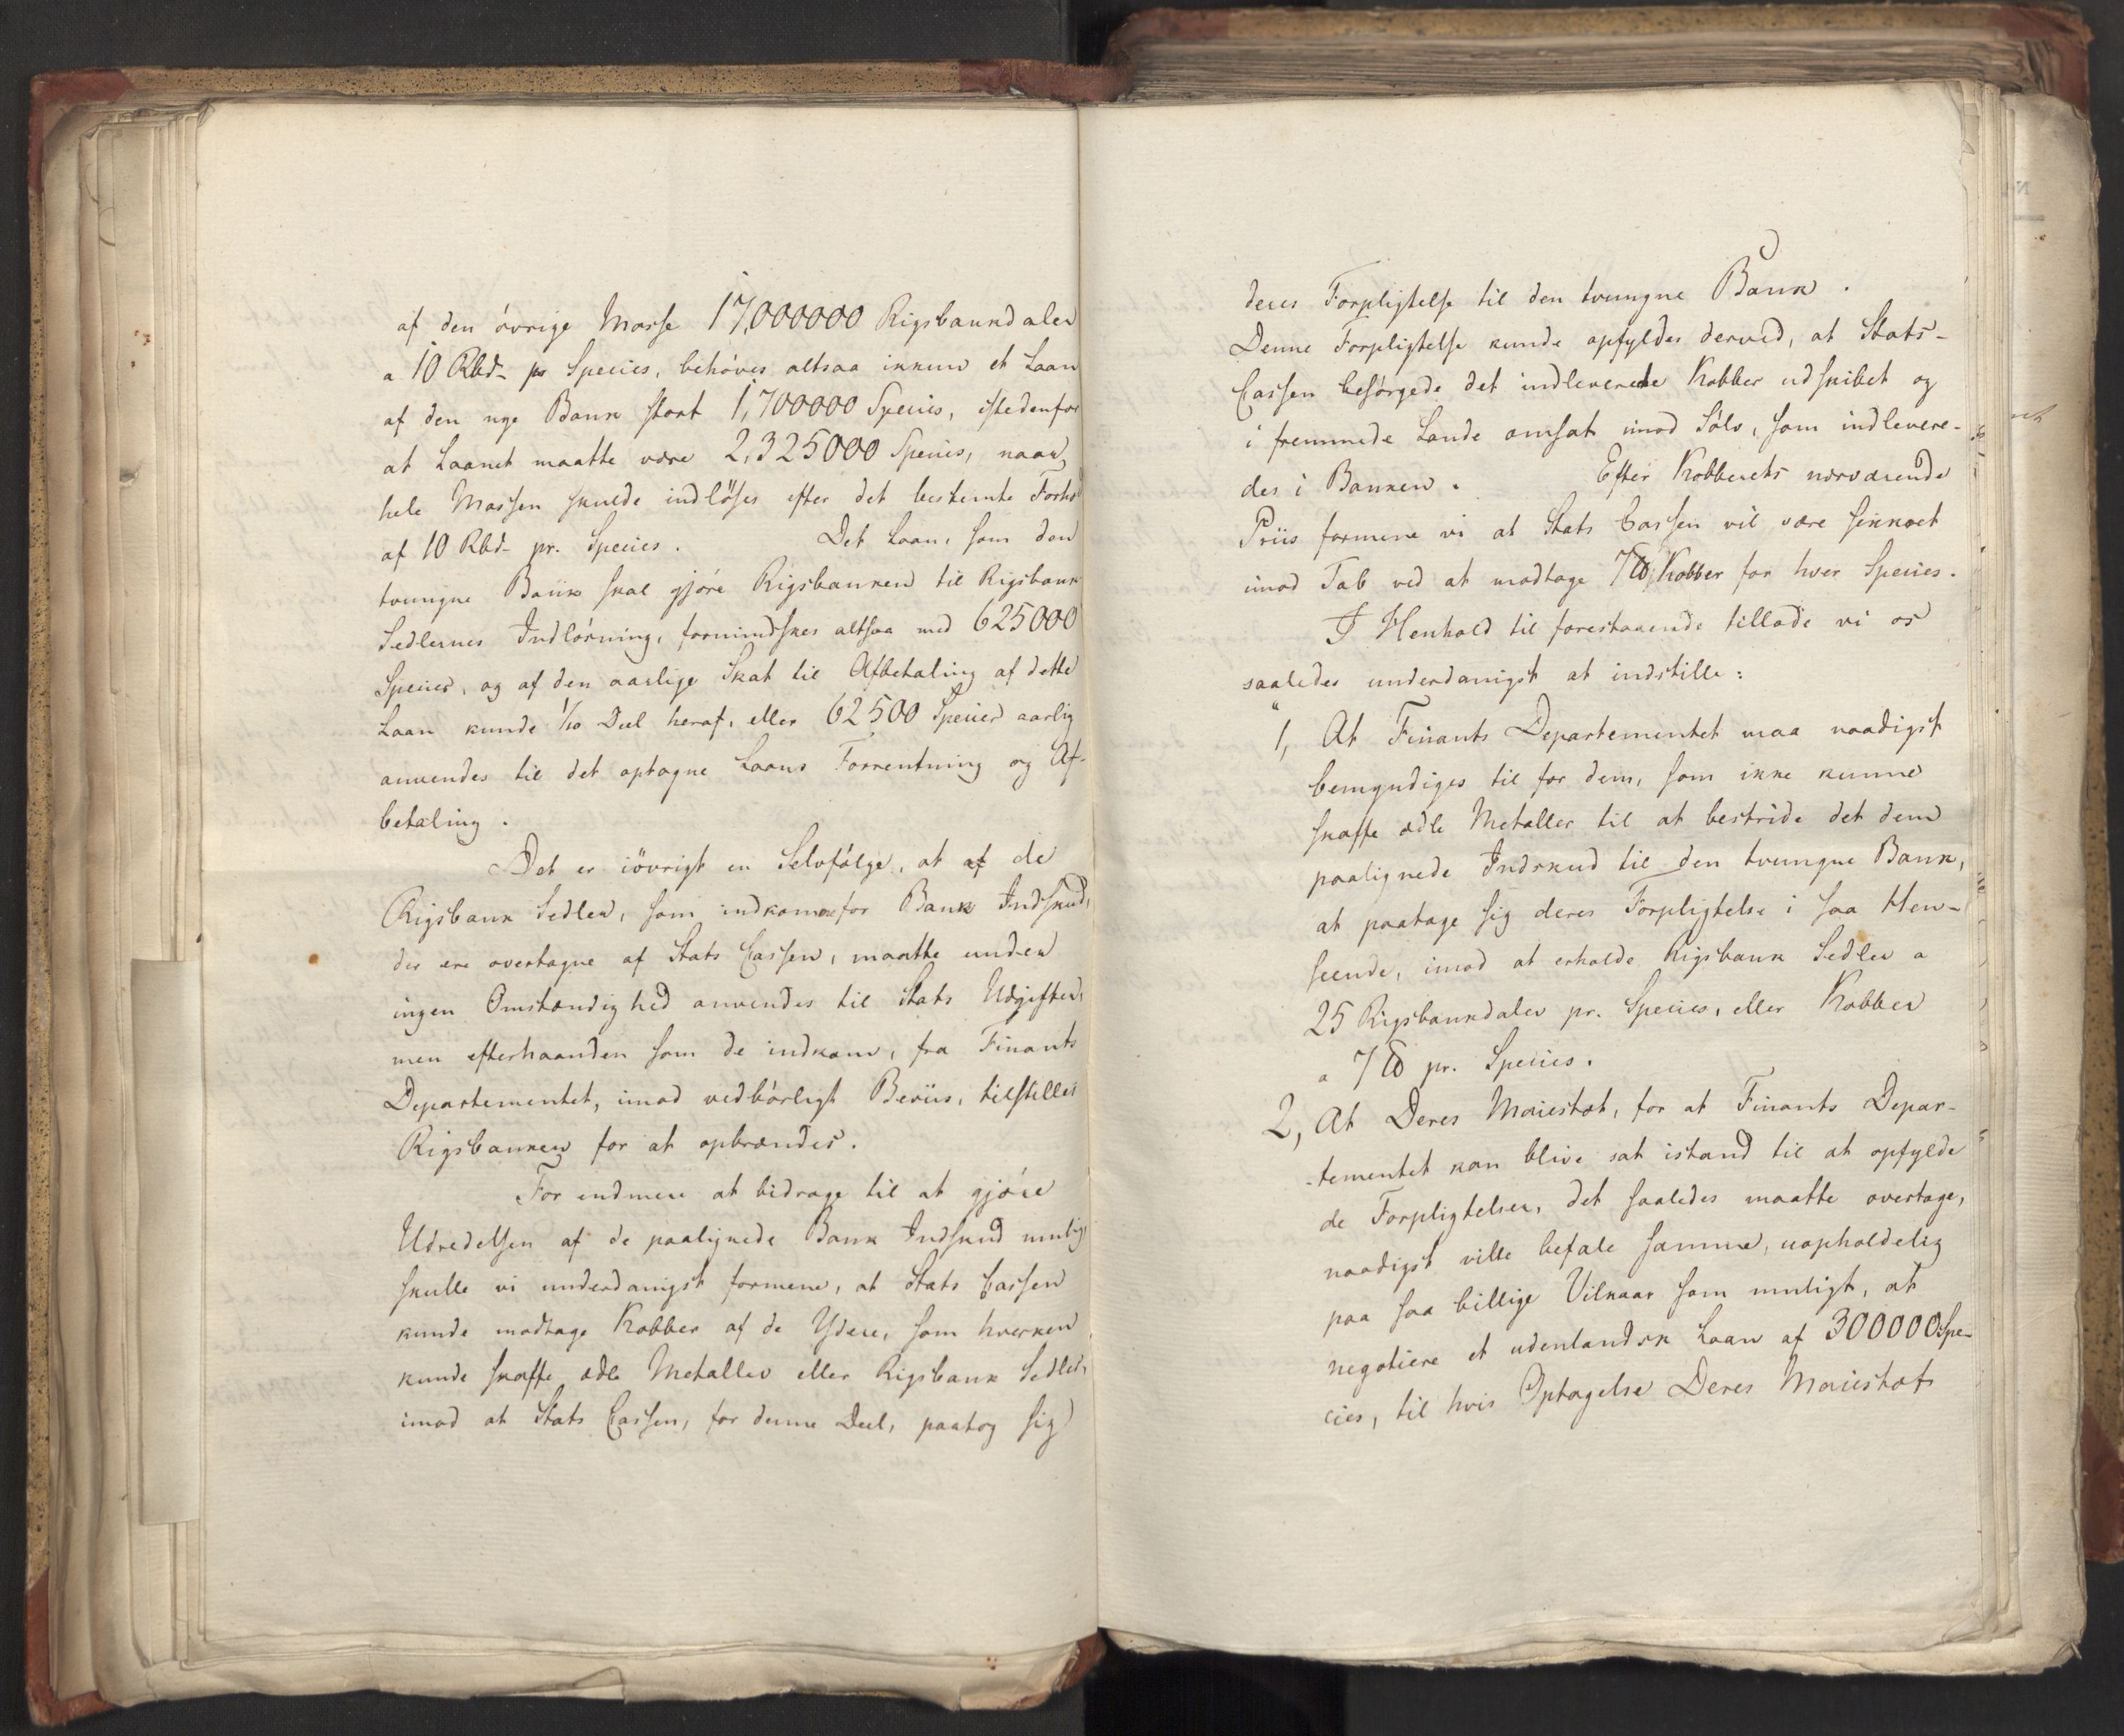 af den övrige Masse 17,000000 Rigsbankdaler
a 10 Rbd- pr Species, behöves altsaa ikkun et Laan
af den nye Bank stort 1,700000 Species, istedenfor
at Laanet maatte være 2,325000 Species, naar
hele Massen skulde indlöses efter det bestemte Forhold
af 10 Rbd- pr. Species. Det Laan, som den
tvungne Bank skal gjöre Rigsbanken til Rigsbank
Sedlernes Indlösning, formindskes altsaa med 625000
Species, og af den aarlige Skat til Afbetaling af dette
Laan kunde 1/10 Deel heraf, eller 62500 Species aarlig
anvendes til det optagne Laans Forrentning og Af-
betaling.
Det er iövrigt en Selvfölge, at af de
Rigsbank Sedler, som indkomme for Bank Indskud,
der ere overtagne af Stats Cassen, maatte under
ingen Omstændighed anvendes til Stats Udgifter,
men efterhaanden som de indkom, fra Finants
Departementet, imod vedbörligt Beviis, tilstilles
Rigsbanken for at opbrændes.
For endmere at bidrage til at gjöre
Udredelsen af de paalignede Bank Indskud mulig,
skulle vi underdanigst formene, at Stats Cassen
kunde modtage Kobber af de Ydere, som hverken
kunde skaffe ædle Metaller eller Rigsbank Sedler,
imod at Stats Cassen, for denne Deel, paatog sig
deres Forpligtelse til den tvungne Bank.
Denne Forpligtelse kunde opfyldes derved, at Stats-
Cassen besörgede det indleverede Kobber udskibet og
i fremmede Lande omsat imod Sölv, som indlevere-
des i Banken. Efter Kobberets nærværende
Priis formene vi at Stats Cassen vil være sikkret
imod Tab ved at modtage 7 ℔ Kobber for hver Species.
I Henhold til forestaaende tillade vi os
saaledes underdanigst at indstille:
"1, At Finants Departementet maa naadigst
bemyndiges til for dem, som ikke kunne
skaffe ædle Metaller til at bestride det dem
paalignede Indskud til den tvungne Bank,
at paatage sig deres Forpligtelse i saa Hen-
seende, imod at erholde Rigsbank Sedler a
25 Rigsbankdaler pr. Species, eller Kobber
a 7 ℔ pr. Species.
2, At Deres Maiestæt, for at Finants Depar-
-tementet kan blive sat istand til at opfylde
de Forpligtelser, det saaledes maatte overtage,
naadigst ville befale samme, uopholdelig
paa saa billige Vilkaar som muligt, at
negotiere et udenlandsk Laan af 300000 Spe-
cies, til hvis Optagelse Deres Maiestæt